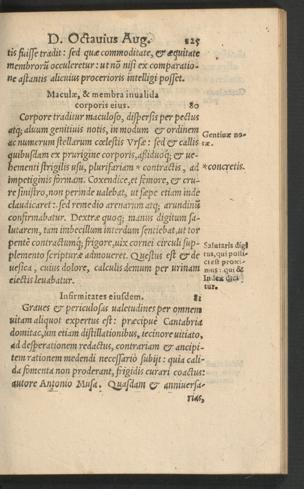 D. Octauius Aug. 225
tis fuisse tradit: sed quæ commoditate, & æquitate
membrorũ occuleretur: ut nõ nisi ex comparatio-
ne astantis alicuius procerioris intelligi posset.
Maculæ, & membra inualida
corporis eius. 80
Corpore traditur maculoso, dispersis per pectus
atq; aluum genitiuis notis, in modum & ordinem
Gentiuæ no-
tæ.
ac numerum stellarum cœlestis Vrsæ: sed & callis
quibusdam ex prurigine corporis, assiduoq; & ue-
hementi strigilis usu, plurifariam * contractis, ad
* concretis.
impetiginis formam. Coxendice, et femore, & cru-
re sinistro, non perinde ualebat, ut sæpe etiam inde
claudicaret: sed remedio arenarum atq; arundinũ
confirmabatur. Dextræ quoq; manus digitum sa-
lutarem, tam imbecillum interdum sentiebat, ut tor
pentẽ contractumq; frigore, uix cornei circuli sup-
plemento scripturæ admoueret. Questus est & de
Salutaris digi
tus, qui polli-
ci est proxi-
mus: qui &
Index dici
tur.
uesica, cuius dolore, calculis demum per urinam
eiectis leuabatur.
Infirmitates eiusdem. 81
Graues & periculosas ualetudines per omnem
uitam aliquot expertus est: præcipue Cantabria
domita, cum etiam distillationibus, iecinore uitiato,
ad desperationem redactus, contrariam & ancipi-
tem rationem medendi necessariò subijt: quia cali-
da fomenta non proderant, frigidis curari coactus:
autore Antonio Musa. Quasdam & anniuersa-
rias,